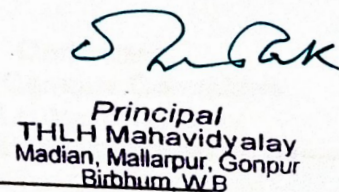 Principal
THLH Mahavidyalay
Madian, Mallarpur, Gonpur
Birbhum, W.B